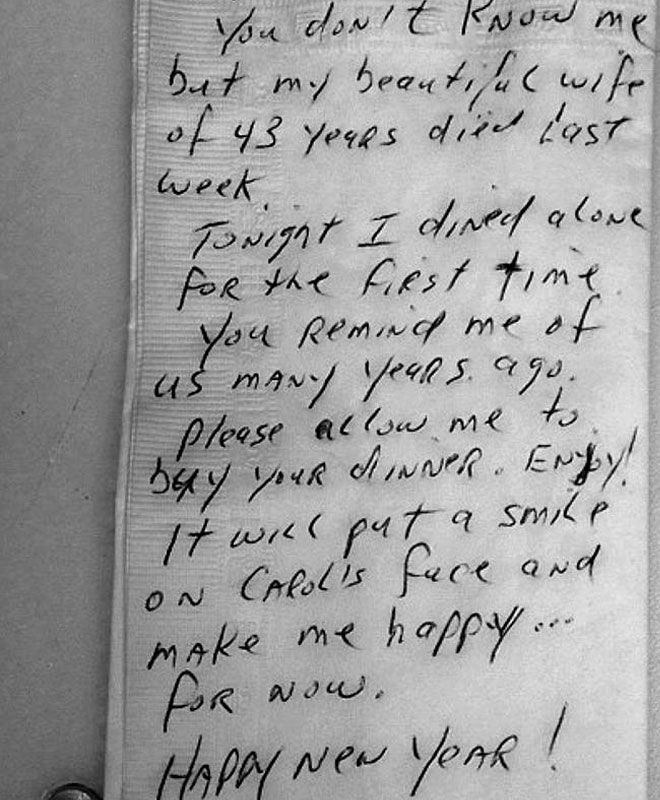 You don't know me
but my beautiful wife
of 43 years died last
week.
Tonight I dined alone
for the first time.
You remind me of
us many years ago.
Please allow me to
buy your dinner. Enjoy!
It will put a smile
on Carol's face and
make me happy...
for now.
Happy New Year!